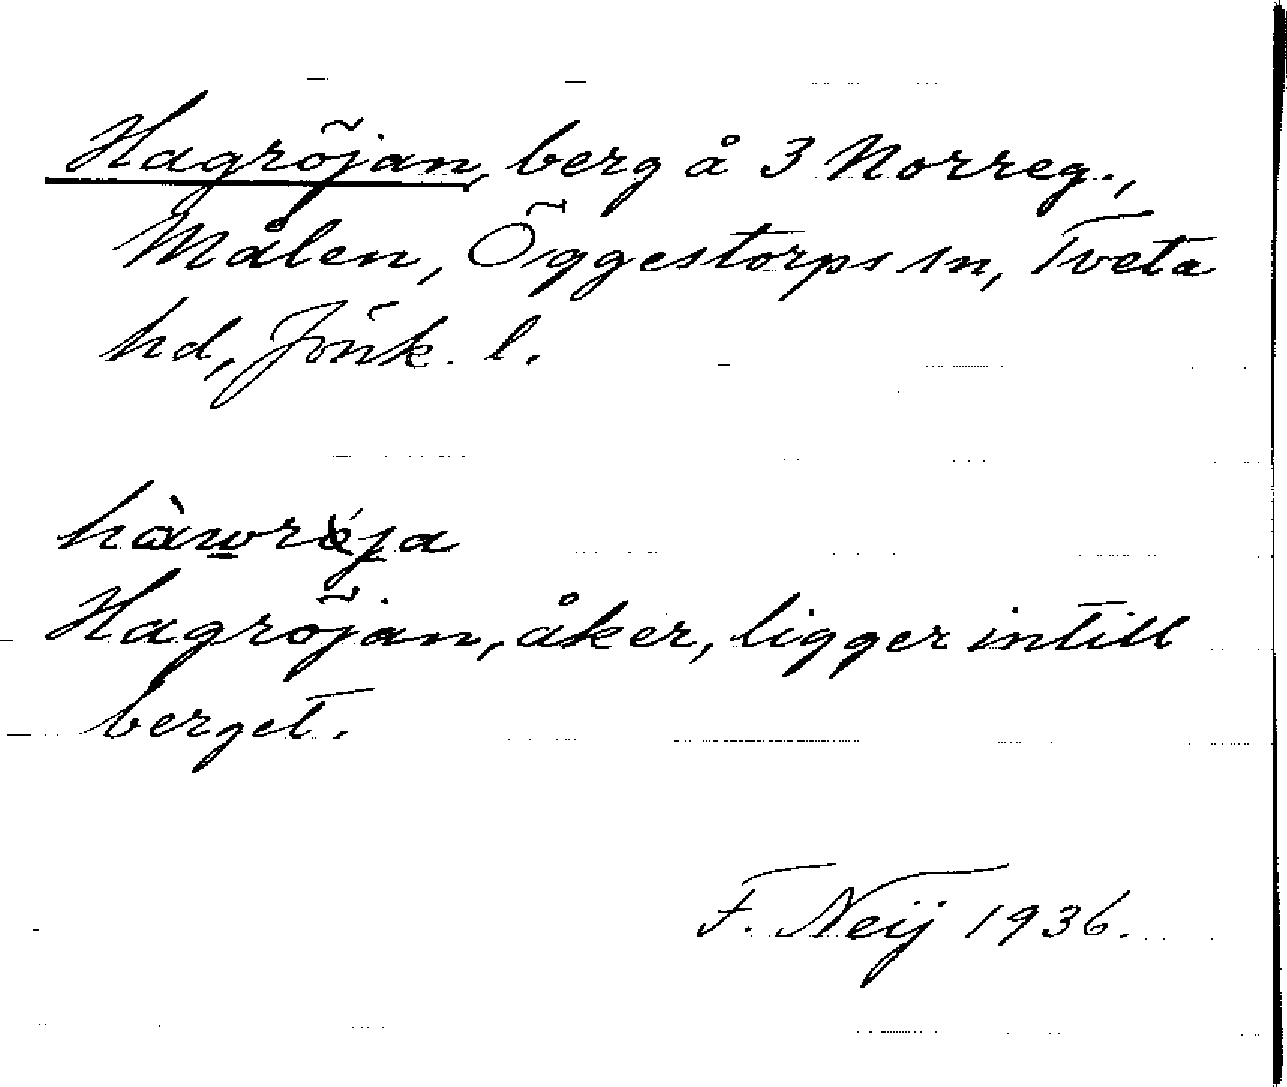 Hagröjan, berg å 3 Norreg.,
Målen, Öggestorps sn, Tveta
hd, Jönk. l.
Hagröjan, åker, ligger intill
berget.
F. Neij 1936.